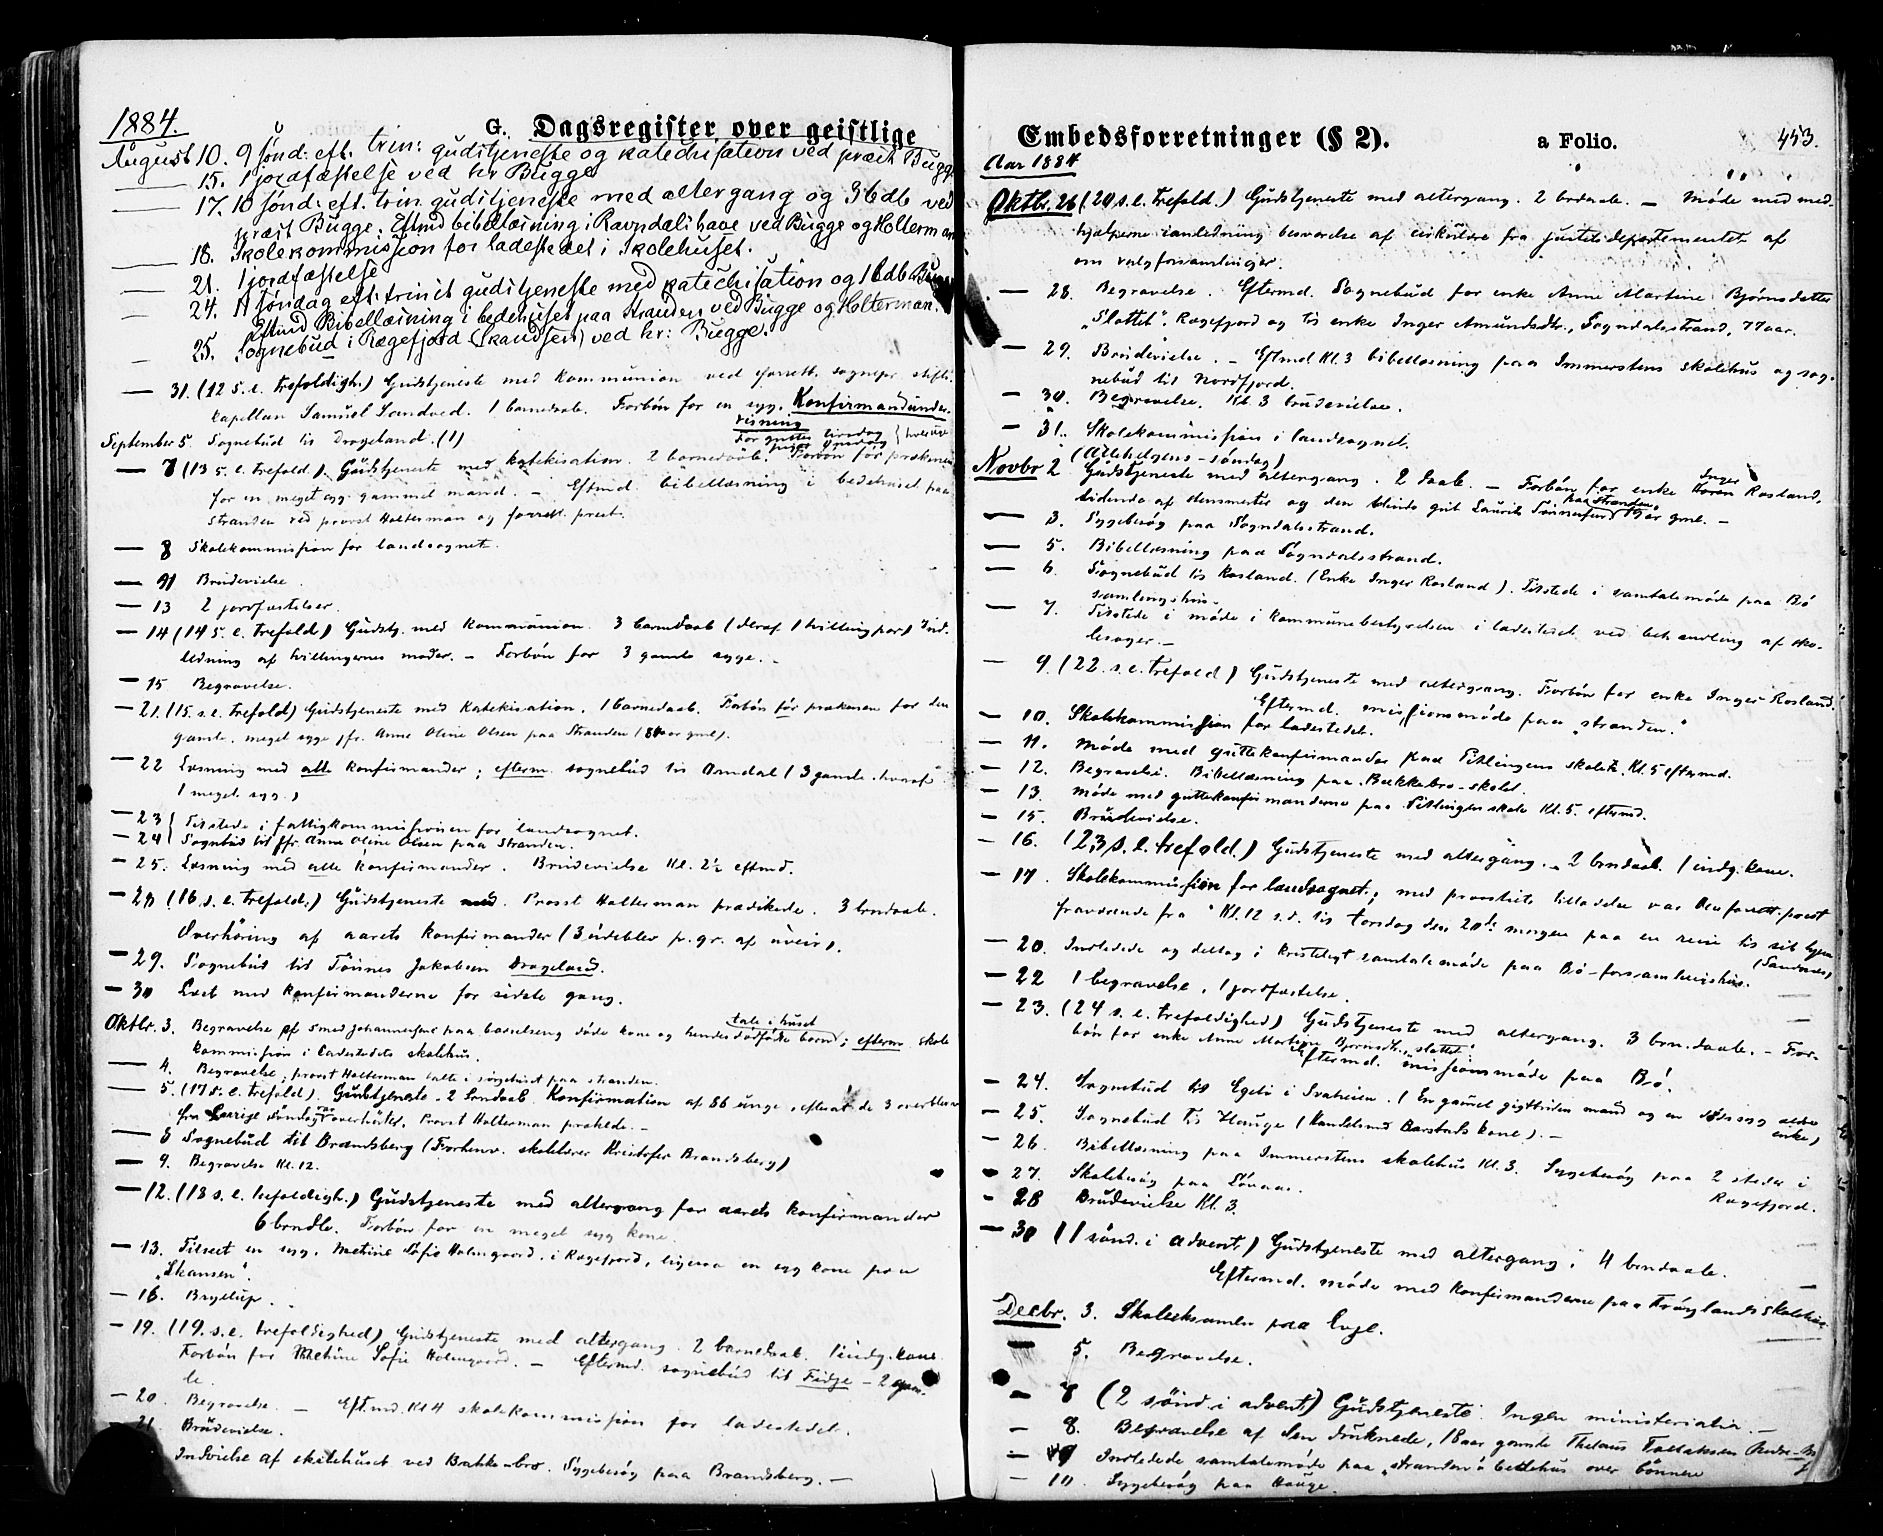 1884.
G. Dagsregister over geistlige
August 10. 9 sønd: eft. trin: gudstjeneste og katechisation ved præst Bugge
15. 1 jordfæstelse ved hr Bugge
17. 10 sønd: eft. trin. gudstjeneste med altergang og 3 bdb ved
præst Bugge. Eftmd bibellæsning i Ravndals have ved Bugge og Holterman
18. Skolekommission for ladestedet i Skolehuset.
21. 1 jordfæstelse
24. 11 søndag eft: trinit gudstjeneste med katechisation og 1 bdb
Eftmd Bibellæsning i bedehuset paa Stranden ved Bugge og Holterman.
25. Sognebud i Rægefjord (Skandsen) ved hr: Bugge.
31. (12 s. e. trefoldigh.) Gudstjeneste med kommunion ved forrett. sognepr. stifts-
kapellan Samuel Sandved. 1 barnedaab. Forbøn for en syg. Konfirmandunder-
visning
For gutter tirsdag
September 5. Sognebud til Drageland. (1)
7 (13 s. e. trefold.) Gudstjeneste med katekisation. 2 barnedaab. Forbøn før prækenen
for en meget syg gammel mand. – Eftmd. bibellæsning i bedehuset paa
stranden ved provst Holterman og forrett. prest.
8 Skolekommission for landsognet.
9 Brudevielse.
13 2 jordfæstelser.
14 (14 s. e. trefold) Gudstj. med kommunion. 3 barnedaab (deraf 1 tvillingpar) Ind-
ledning af tvillingernes moder. – Forbøn for 3 gamle syge. –
15 Begravelse.
21. (15. s. e. trefold) Gudstjeneste med katekisation. 1 barnedaab. Forbøn før prækenen for den
gamle, meget syge jfr. Anne Oline Olsen paa Stranden (84 aar gml).
22 Læsning med alle konfirmander; efterm. sognebud til Amdal (3 gamle, hvoraf
1 meget syg.)
23 Tilstede i fattigkommissionen for landsognet.
24 Sognebud til jfr. Anne Oline Olsen paa Stranden.
25. Læsning med alle konfirmander. Brudevielse Kl. 2½ eftmd.
28 (16. s. e. trefold.) Gudstjeneste med. Provst Holterman prædikede. 3 brndaab.
Overhøring af aarets konfirmander (3 udeblev p. gr. af uveir).
29. Sognebud til Tønnes Jakobsen Drageland.
30 Læst med konfirmanderne for sidste gang.
tale i huset
Oktbr. 3. Begravelse af smed Johannesens paa barselseng døde kone og hendes dødfødte barn; efterm. skole
kommission i Ladestedets skolehus.
4. Begravelse; provst Holterman talte i sørgehuset paa stranden.
5. (17 s. e. trefold). Gudstjeneste. 2 brndaab. Konfirmation af 86 unge, efterat de 3 overblevne
fra forrige søndag var overhørte. Provst Holterman prækede. –
8 Sognebud til Brandsberg (Forhenv. skolelærer Kristofer Brandsberg)
9. Begravelse Kl. 12.
12. (18 s. e. trefoldigh.) Gudstjeneste med altergang for aarets konfirmander
6 brndb. Forbøn for en meget syg kone.
13. Tilseet en syg, Metine Sofie Holmgaard, i Rægefjord, ligesaa en syg kone paa
„Skansen".
16. Bryllup.
19. (19. s. e. trefoldighed) Gudstjeneste med altergang. 2 barnedaab. 1 indg. kone
Forbøn for Metine Sofie Holmgaard. – Eftermd. sognebud til Fidje – 2 gam-
le.
20. Begravelse. – Eft.md. Kl 4 skolekommission for ladestedet.
21. Brudevielse.
Indvielse af skolehuset ved Bakke-bro. Sygebesøg paa Brandsberg. –
Embedsforretninger (§ 2).
a Folio.
453.
Aar 1884
Oktbr. 26 (20 s. e. trefold.) Gudstjeneste med altergang. 2 brdaab. – Møde med med-
hjælperne i anledning besvarelse af cirkulære fra justitsdepartementet af
om valgforsamlinger.
28. Begravelse. Eftermd. Sognebud for enke Anne Martine Bjørnsdatter
„Slottet". Rægefjord og til enke Inger Amundsdtr., Sogndalsstrand, 77 aar.
29. Brudevielse. – Eftmd Kl. 3 bibellæsning paa Immerstens skolehus og sog-
nebud til Nordfjord.
30. Begravelse. Kl. 3 brudevielse.
31. Skolekommission i landsognet.
(Allehelgens-søndag)
Novbr 2 Gudstjeneste med altergang. 2 daab. – Forbøn for enke Inger Rosland,
paa stranden
3. Sygebesøg paa Sogndalsstrand.
5. Bibellæsning paa Sogndalsstrand.
6. Sognebud til Rosland. (Enke Inger Rosland). Tilstede i samtalemøde paa Bø
samlingshus.
7. Tilstede i møde i kommunebestyrelsen i ladestedet ved behandling af sko-
lesager. –
9 (22. s. e. trefold) Gudstjeneste med altergang. Forbøn for enke Inger Rosland.
Eftermd. missionsmøde paa „stranden."
10. Skolekommission for ladestedet.
11. Møde med guttekonfirmander paa skole. Kl. 5 eftermd.
12. Begravelse. Bibellæsning paa Bakkebro-skole.
13. Møde med guttekonfirmanderne paa skole Kl. 5. eftermd.
15. Brudevielse.
16. (23 s. e. trefold.) Gudstjeneste med altergang. – 2 brndaab. 1 indg. kone.
17. Skolekommission for landsognet; med provstiets tilladelse var den forrett. prest
fraværende fra Kl. 12 s. d. til torsdag den 20de morgen paa en reise til sit hjem
(Sandnes)
20. Indledede og deltog i kristeligt samtalemøde paa Bø-forsamlingshus.
22 1 begravelse, 1 jordfæstelse.
23. (24 s. e. trefoldighed) Gudstjeneste med altergang. 3 brn.daab. – For-
bøn for enke Anne Martine Bjørnsdtr. „slottet".
Eftermd. missionsmøde paa Bø.
24. Sognebud til Egeli i Svaheien. (En gammel gigtliden mand og en enke)
25. Sognebud til Hauge (Handelsmd Barstads kone). –
26. Bibellæsning paa Immerstens skolehus Kl. 3. Sygebesøg paa 2 steder i
Rægefjord.
27. Skolebesøg paa Lønaas.
28 Brudevielse Kl. 3.
30 (1 sønd. i advent.) Gudstjeneste med altergang. 4 brndaab.
Eftermd. møde med konfirmanderne paa Frøylands skolehus
Decbr. 3. Skoleeksamen paa Evje.
5. Begravelse.
7 (2 sønd. i advent.) Gudstjeneste. Ingen ministerialia. –
8. Begravelse af den druknede, 18 aar gamle
9 Indledede samtalemøde paa „strandens" bedehus over bønnen
10 Sygebesøg paa Hauge.